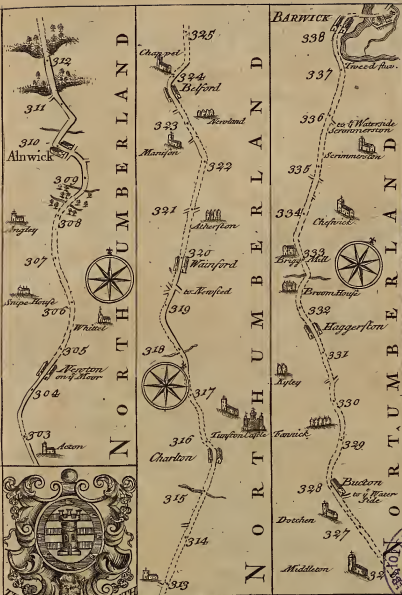 NORTHUMBERLAND
312
311
310
Alnwick
309
308
Longley
307
Snipe House
306
Whittel
305
Newton
on ye Moor
304
303
Acton
NORTHUMBERLAND
325
Chappel
324
Belford
Newland
323
Manison
322
321
Atherston
320
Wainford
to Newsted
319
318
317
316
Charlton
315
314
313
NORTHUMBERLAND
BARWICK
338
Tweed fluv.
337
336
to ye Waterside
Scrimmerston
Scrimmerston
335
334
Cheswick
333
Brigg Mill
Broom House
332
Haggerston
331
Kyley
330
Fenwick
329
Bucton
328
to ye Water
Side
Dotchen
327
Middleton